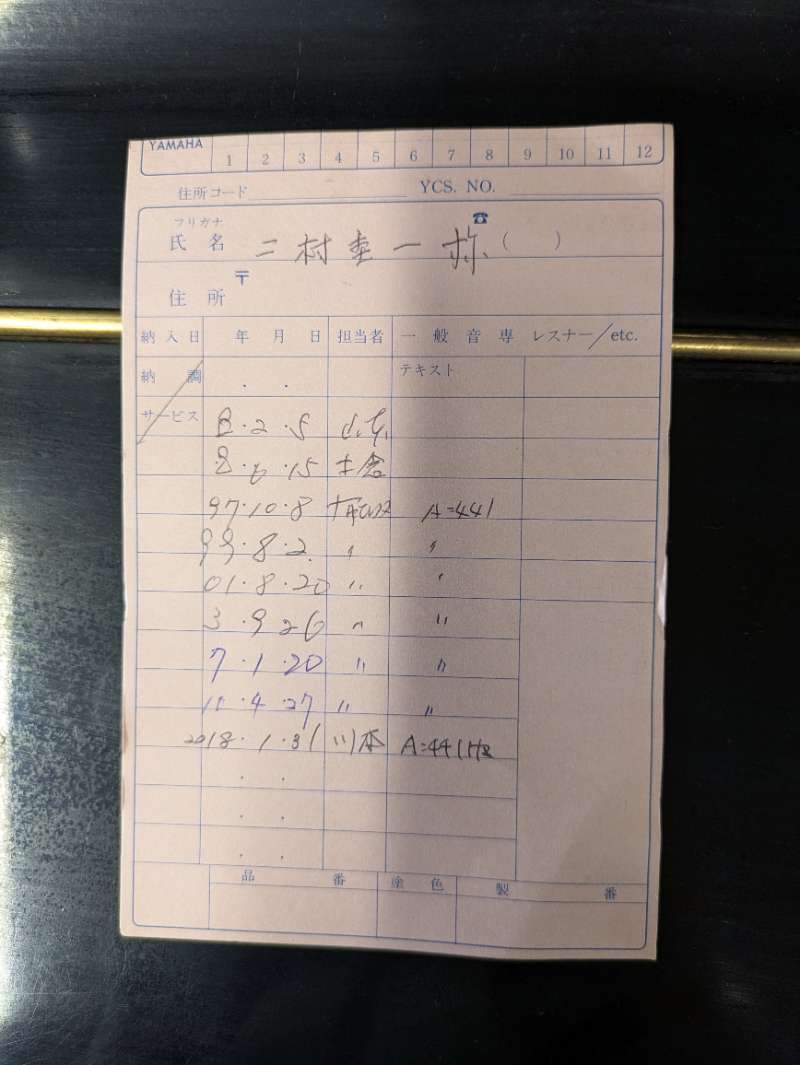 YAMAHA 1 2 3 4 5 6 7 8 9 10 11 12
住所コード YCS. NO.
フリガナ ☎
氏 名 二村 一 ( )
〒
住 所
納 入 日 年 月 日 担当者 一 般 音 専 レスナー/etc.
納 調 . . テキスト
サービス 2・5
6・15
97・10・8 A=441
99・8・2 〃 〃
01・8・20 〃 〃
3・9 26 〃 〃
7・1・20 〃 〃
11・4・27 〃 〃
2018・1・31 川本 A=441Hz
. .
. .
. .
品 番 塗 色 製 番